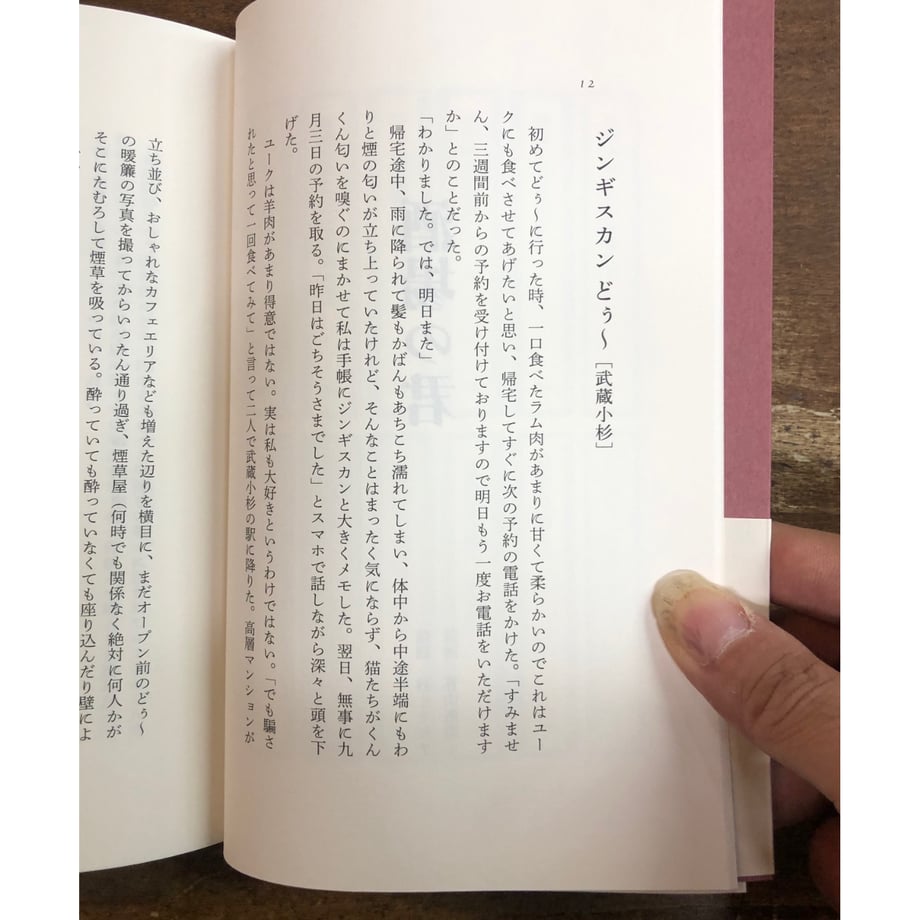 12
ジンギスカン どぅ〜［武蔵小杉］
初めてどぅ〜に行った時、一口食べたラム肉があまりに甘くて柔らかいのでこれはユー
クにも食べさせてあげたいと思い、帰宅してすぐに次の予約の電話をかけた。「すみませ
ん、三週間前からの予約を受け付けておりますので明日もう一度お電話をいただけます
か」とのことだった。
「わかりました。では、明日また」
帰宅途中、雨に降られて髪もかばんもあちこち濡れてしまい、体中から中途半端にもわ
りと煙の匂いが立ち上っていたけれど、そんなことはまったく気にならず、猫たちがくん
くん匂いを嗅ぐのにまかせて私は手帳にジンギスカンと大きくメモした。翌日、無事に九
月三日の予約を取る。「昨日はごちそうさまでした」とスマホで話しながら深々と頭を下
げた。
ユークは羊肉があまり得意ではない。実は私も大好きというわけではない。「でも騙さ
れたと思って一回食べてみて」と言って二人で武蔵小杉の駅に降りた。高層マンションが
立ち並び、おしゃれなカフェエリアなども増えた辺りを横目に、まだオープン前のどぅ〜
の暖簾の写真を撮ってからいったん通り過ぎ、煙草屋（何時でも関係なく絶対に何人かが
そこにたむろして煙草を吸っている。酔っていても酔っていなくても座り込んだり壁によ